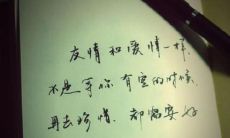 友情和爱情一样.
不是等你有空的时候.
再去珍惜. 都需要好